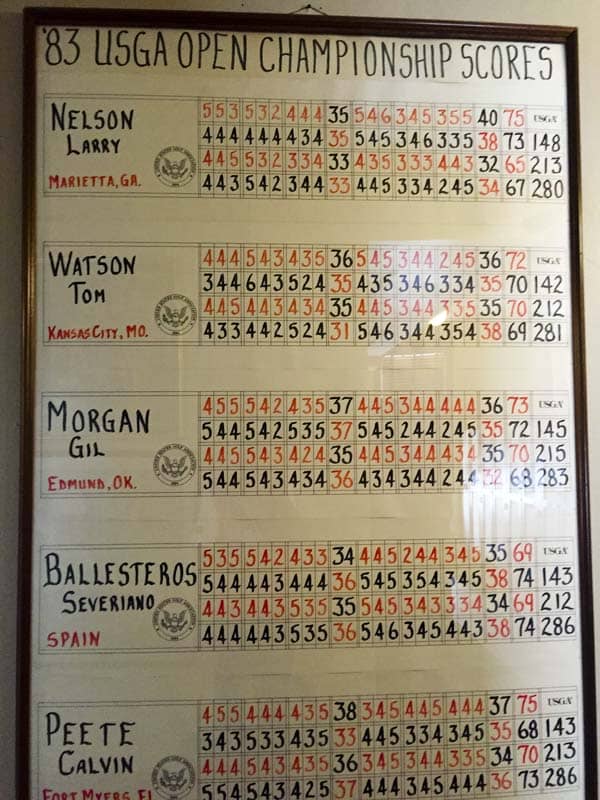 '83 USGA OPEN CHAMPIONSHIP SCORES
NELSON LARRY MARIETTA, GA.
553 532 444 35 546 345 355 40 75 USGA
444 444 434 35 545 346 335 38 73 148
445 532 334 33 435 333 443 32 65 213
443 542 344 33 445 334 245 34 67 280
WATSON TOM KANSAS CITY, MO.
444 543 435 36 545 344 245 36 72 USGA
344 643 524 35 435 346 334 35 70 142
445 443 434 35 445 344 335 35 70 212
433 442 524 31 546 344 354 38 69 281
MORGAN GIL EDMUND, OK.
455 542 435 37 445 344 444 36 73 USGA
544 542 535 37 545 244 245 35 72 145
445 543 424 35 445 344 434 35 70 215
544 543 434 36 434 344 244 32 68 283
BALLESTEROS SEVERIANO SPAIN
535 542 433 34 445 244 345 35 69 USGA
544 443 444 36 545 354 345 38 74 143
443 443 535 35 545 343 334 34 69 212
444 443 535 36 546 345 443 38 74 286
PEETE CALVIN FORT MYERS, FL
455 444 435 38 345 445 444 37 75 USGA
343 533 435 33 445 334 345 35 68 143
444 543 435 36 345 344 335 34 70 213
554 543 425 37 444 345 444 36 73 286